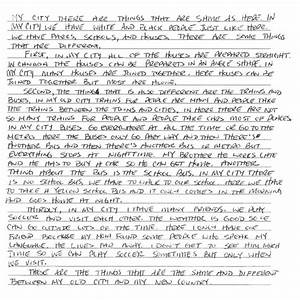 MY CITY THERE ARE THINGS THAT ARE SAME AS HERE. IN
MY CITY WE HAVE WHITE AND BLACK PEOPLE JUST LIKE HERE.
WE HAVE PARKS, SCHOOLS, AND HOUSES. THERE ARE SOME THINGS
THAT ARE DIFFERENT.
FIRST, IN MY CITY ALL OF THE HOUSES ARE PREPARED STRAIGHT.
THE HOUSES CAN BE PREPARED IN AN ANGLE SHAPE. IN
MY CITY MANY HOUSES ARE JOINED TOGETHER. HERE HOUSES CAN BE
JOINED TOGETHER BUT MOST ARE ALONE.
SECOND, THE THINGS THAT IS ALSO DIFFERENT ARE THE TRAINS AND
BUSES. IN MY OLD CITY TRAINS FOR PEOPLE ARE MANY AND PEOPLE TAKE
THE TRAINS BETWEEN THE TOWNS AND CITIES. IN HERE THERE ARE NOT
SO MANY TRAINS FOR PEOPLE AND PEOPLE TAKE CARS MOST OF PLACES.
IN MY CITY BUSES GO EVERYWHERE AT ALL THE TIME OR GO TO THE
METRO. HERE THE BUSES ONLY GO PART WAY AND THEN THERE'S
ANOTHER BUS AND THEN THERE'S ANOTHER BUS OR METRO BUT
EVERYTHING STOPS AT NIGHTTIME. MY BROTHER HE WORKS LATE
AND HE HAS TO BUY A CAR SO HE CAN GET HOME. ANOTHER
THING ABOUT THE BUS IS THE SCHOOL BUS. IN MY CITY THERE
IS NO SCHOOL BUS WE HAVE TO TAKE TO OUR SCHOOL. HERE WE HAVE
TO TAKE A YELLOW SCHOOL BUS AND IT ONLY COMES IN THE MORNING
AND GOES HOME AT NIGHT.
THIRDLY, IN MY CITY I HAVE MANY FRIENDS. WE PLAY
SOCCER AND VISIT EACH OTHER. THE WEATHER IS GOOD SO WE
CAN GO OUTSIDE LOTS OF THE TIME. HERE I ONLY HAVE ONE
FRIEND BECAUSE MY MOM FOUND SOME PEOPLE WHO SPEAK MY
LANGUAGE. HE LIVES FAR AWAY. I DON'T GET TO SEE HIM MUCH
TIME SO WE CAN PLAY SOCCER SOMETIMES BUT ONLY WHEN
WE VISIT.
THESE ARE THE THINGS THAT ARE THE SAME AND DIFFERENT
BETWEEN MY OLD CITY AND MY NEW COUNTRY.